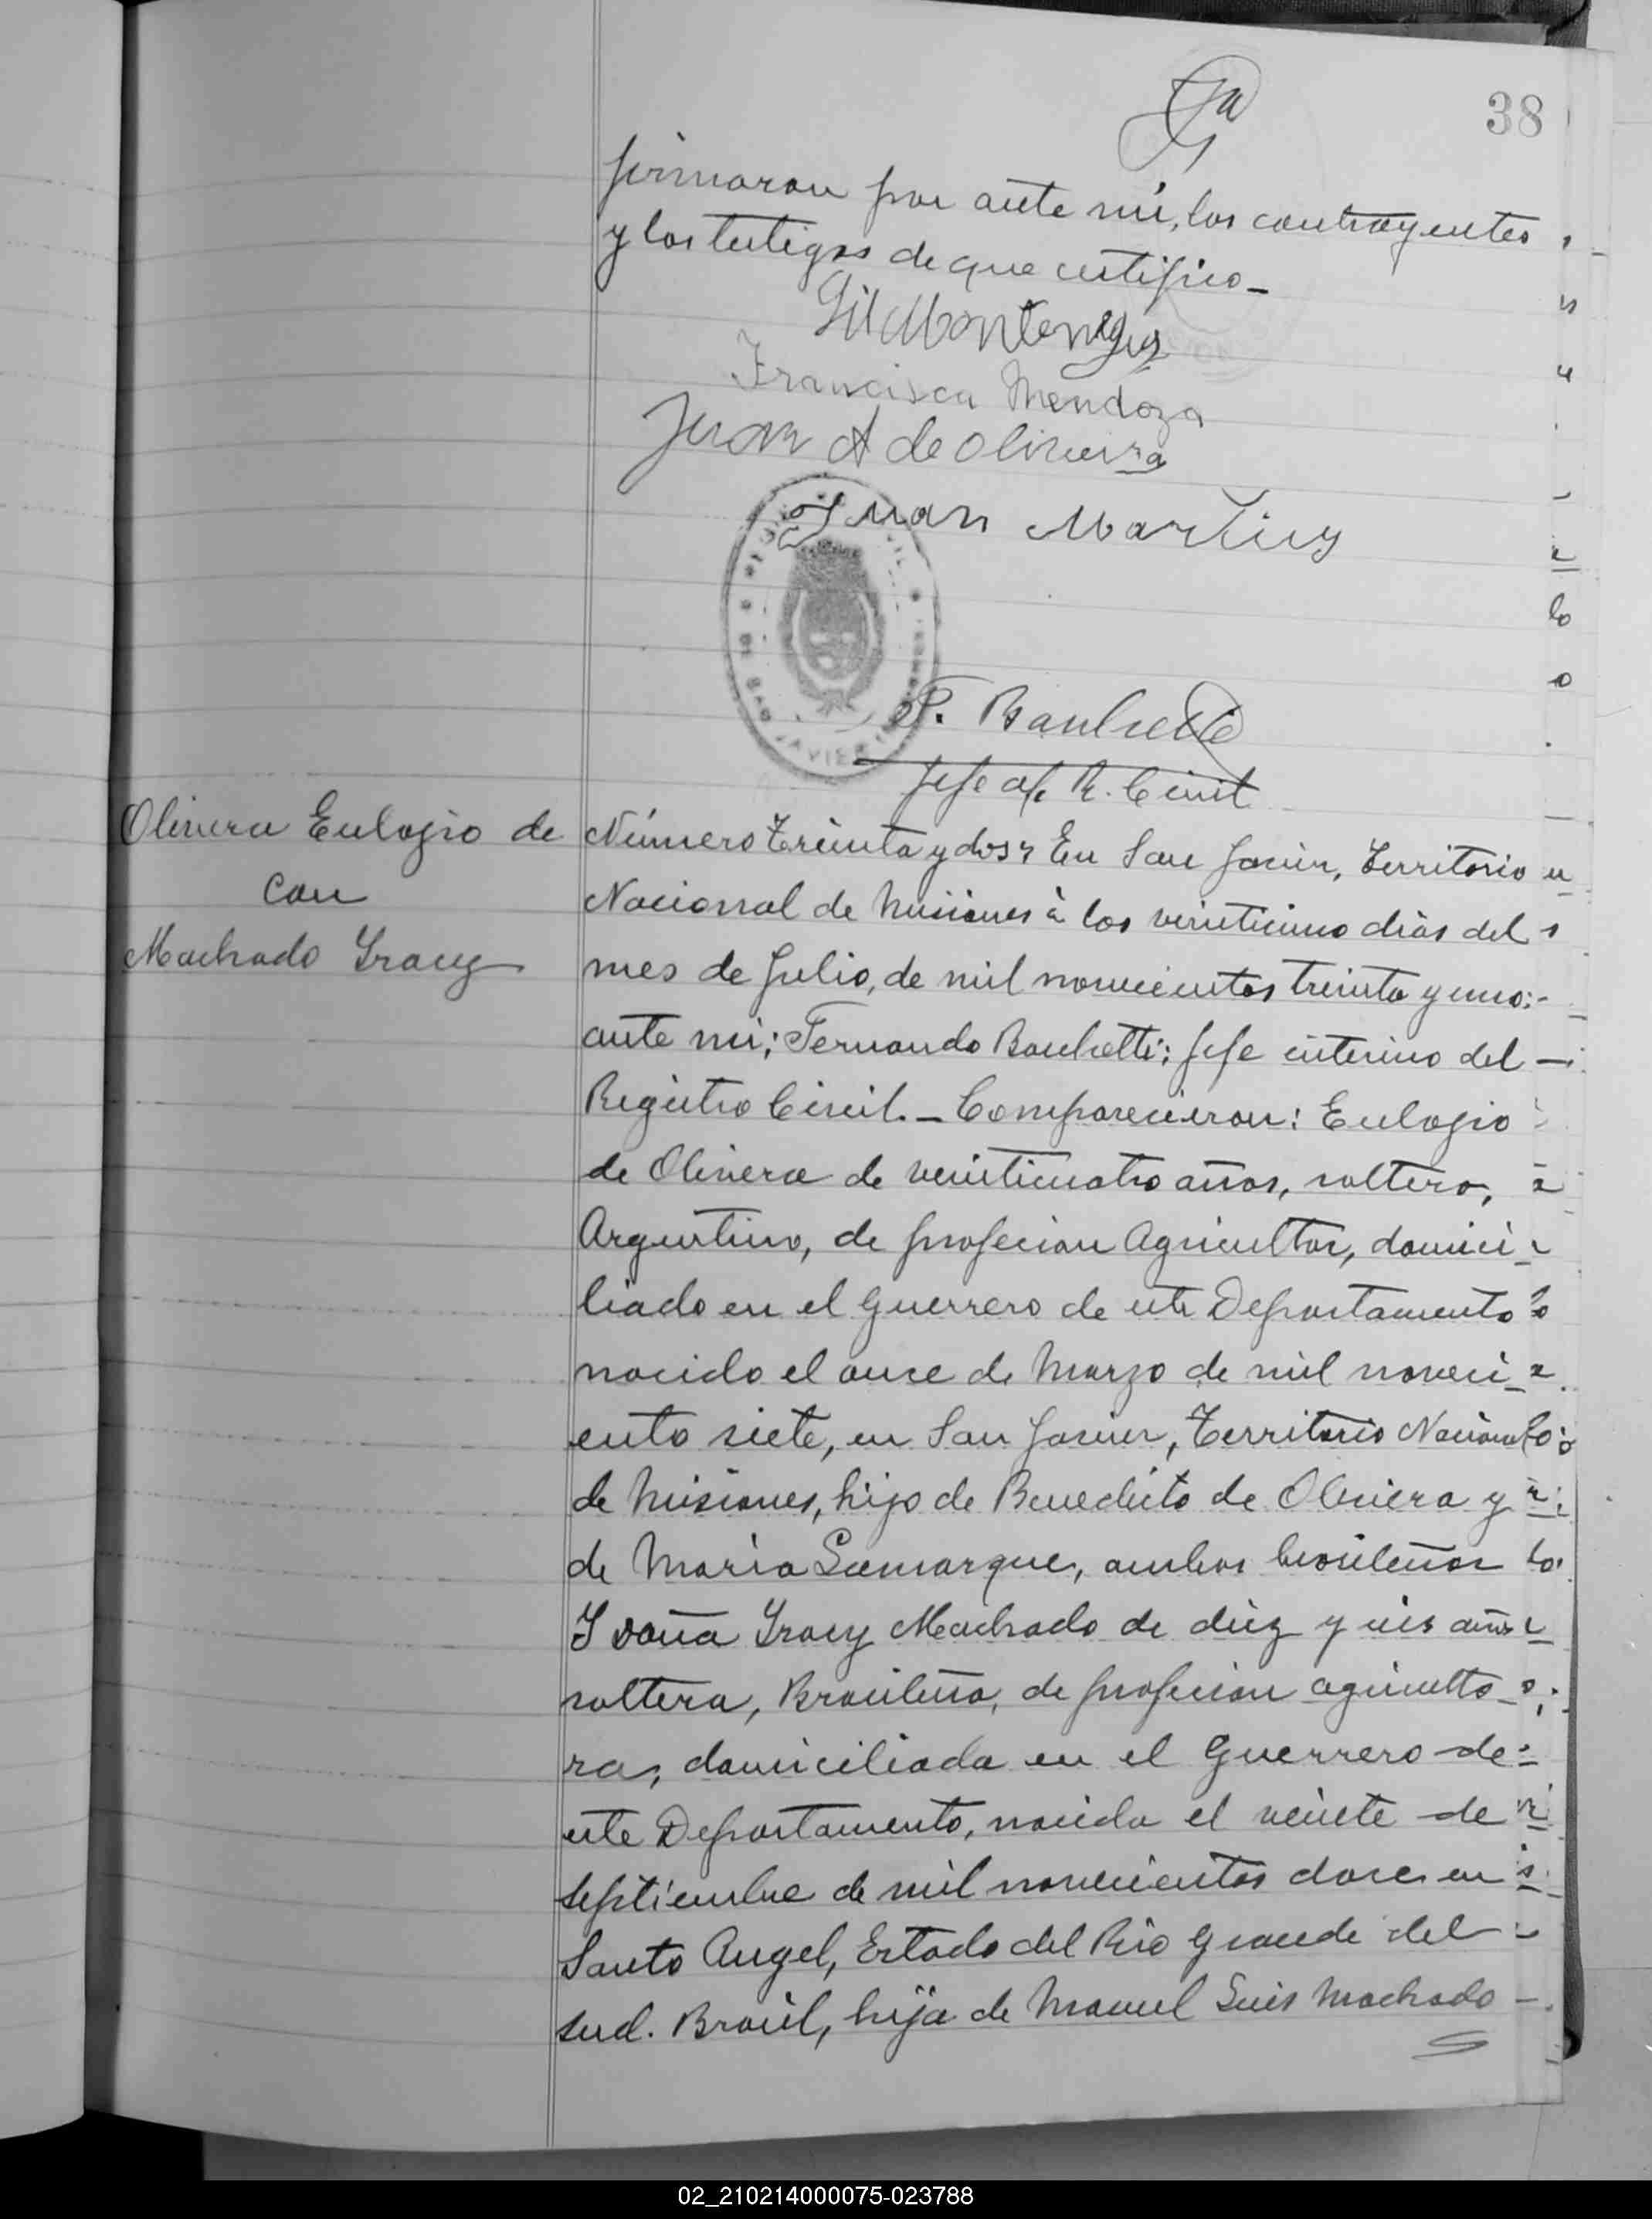 38
firmaron por ante mi, los contrayentes
y los testigos de que certifico_
Gil Montenegro
Francisca Mendoza
Juan A de Oliveira
Juan Martins
DE SAN JAVIER
F. Banchetti
Jefe of. R. Civil
Olivera Eulogio de
con
Machado Iracy
Número Treinta y dos: En San Javier, Territorio
Nacional de Misiones à los veinticinco dias del
mes de Julio, de mil novecientos treinta y uno:-
ante mi; Fernando Banchetti: Jefe interino del
Registro Civil._ Comparecieron: Eulogio
de Olivera de veinticuatro años, soltero,
Argentino, de profecion Agricultor, domici
liado en el Guerrero de este Departamento
nacido el once de Marzo de mil noveci_
ento siete, en San Javier, Territorio Nacional
de Misiones, hijo de Benedicto de Olivera y
de Maria Lemarque, ambos brasileños
Y doña Iracy Machado de diez y seis años
soltera, Brasileña, de profecion agriculto_
ra, domiciliada en el Guerrero de
este Departamento, nacida el veinte de
septiembre de mil novecientos doce en
Santo Angel, Estado del Rio Grande del
sud. Brasil, hija de Manuel Luis Machado
02_210214000075-023788